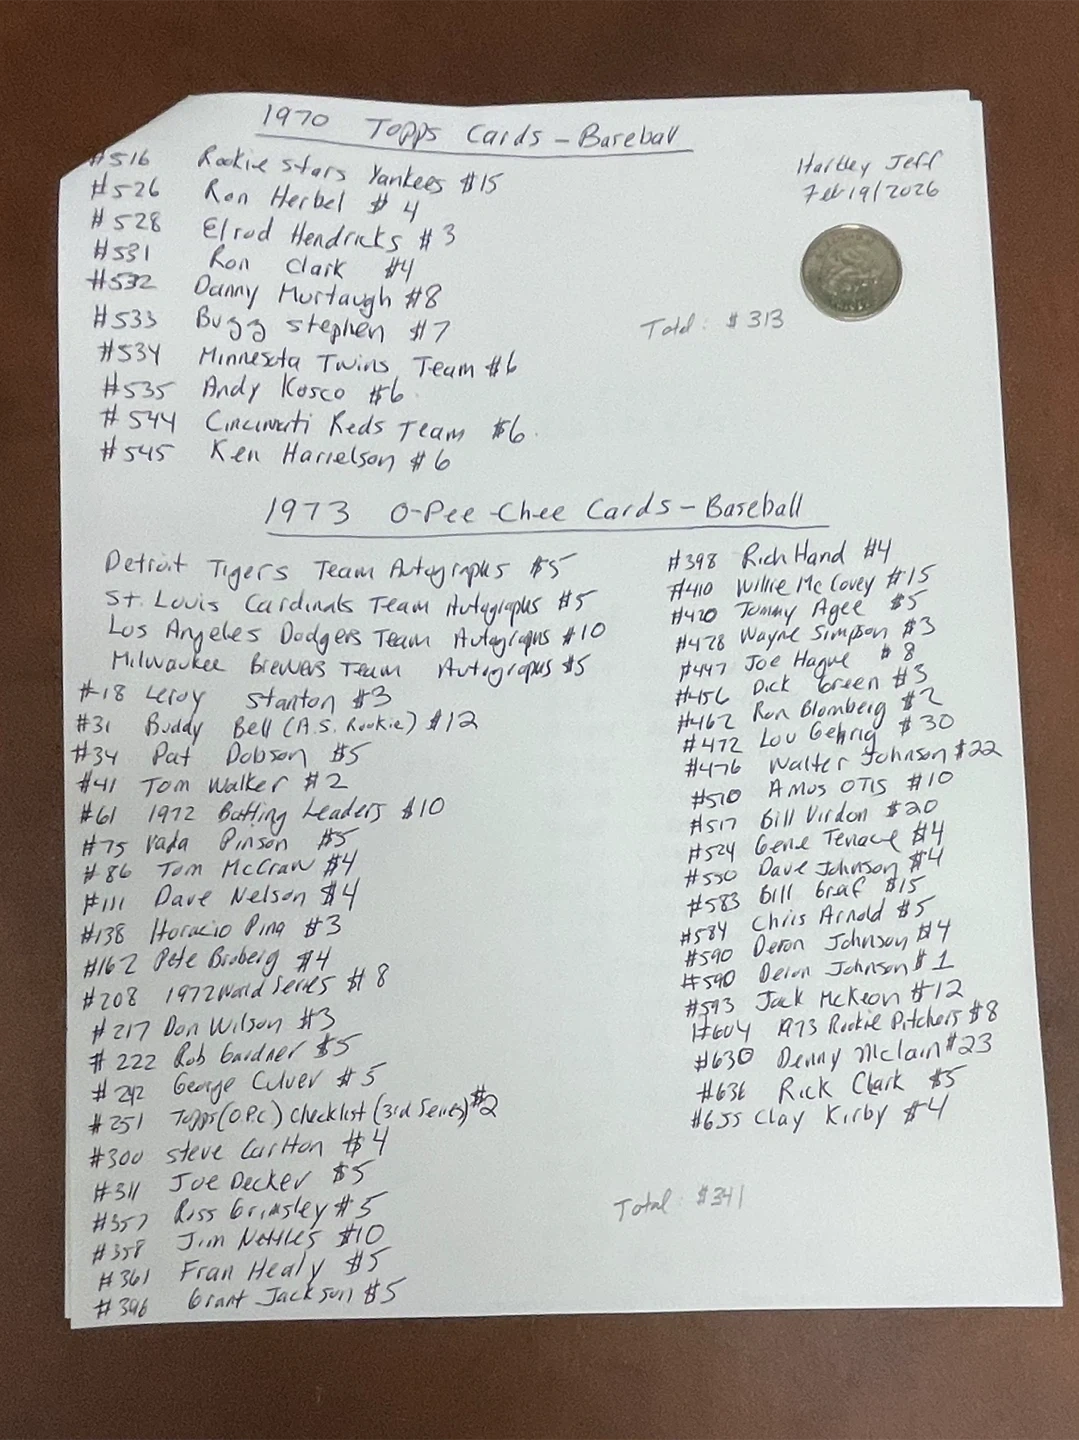 1970 Topps Cards - Baseball
Hartley Jeff
Feb 19/2026
#516 Rookie Stars Yankees $15
#526 Ron Herbel $4
#528 Elrod Hendricks $3
#531 Ron Clark $4
#532 Danny Murtaugh $8
#533 Buzz Stephen $7
#534 Minnesota Twins Team $6
#535 Andy Kosco $6
#544 Cincinnati Reds Team $6
#545 Ken Harrelson $6
Total: $313
1973 O-Pee-Chee Cards - Baseball
Detroit Tigers Team Autographs $5
St. Louis Cardinals Team Autographs $5
Los Angeles Dodgers Team Autographs $10
Milwaukee Brewers Team Autographs $5
#18 Leroy Stanton $3
#31 Buddy Bell (A.S. Rookie) $12
#34 Pat Dobson $5
#41 Tom Walker $2
#61 1972 Batting Leaders $10
#75 Vada Pinson $5
#86 Tom McCraw $4
#111 Dave Nelson $4
#138 Horacio Pina $3
#162 Pete Broberg $4
#208 1972 World Series $8
#217 Don Wilson $3
#222 Rob Gardner $5
#242 George Culver $5
#251 Topps (O.P.C) Checklist (3rd Series) $2
#300 Steve Carlton $4
#311 Joe Decker $5
#357 Ross Grimsley $5
#358 Jim Nettles $10
#361 Fran Healy $5
#396 Grant Jackson $5
#398 Rich Hand $4
#410 Willie McCovey $15
#420 Tommy Agee $5
#428 Wayne Simpson $3
#447 Joe Hague $8
#456 Dick Green $3
#462 Ron Blomberg $2
#472 Lou Gehrig $30
#476 Walter Johnson $22
#510 Amos Otis $10
#517 Bill Virdon $20
#524 Gene Tenace $4
#550 Dave Johnson $4
#583 Bill Graf $15
#584 Chris Arnold $5
#590 Deron Johnson $4
#590 Deron Johnson $1
#593 Jack McKeon $12
#604 1973 Rookie Pitchers $8
#630 Denny McLain $23
#636 Rick Clark $5
#655 Clay Kirby $4
Total: $341